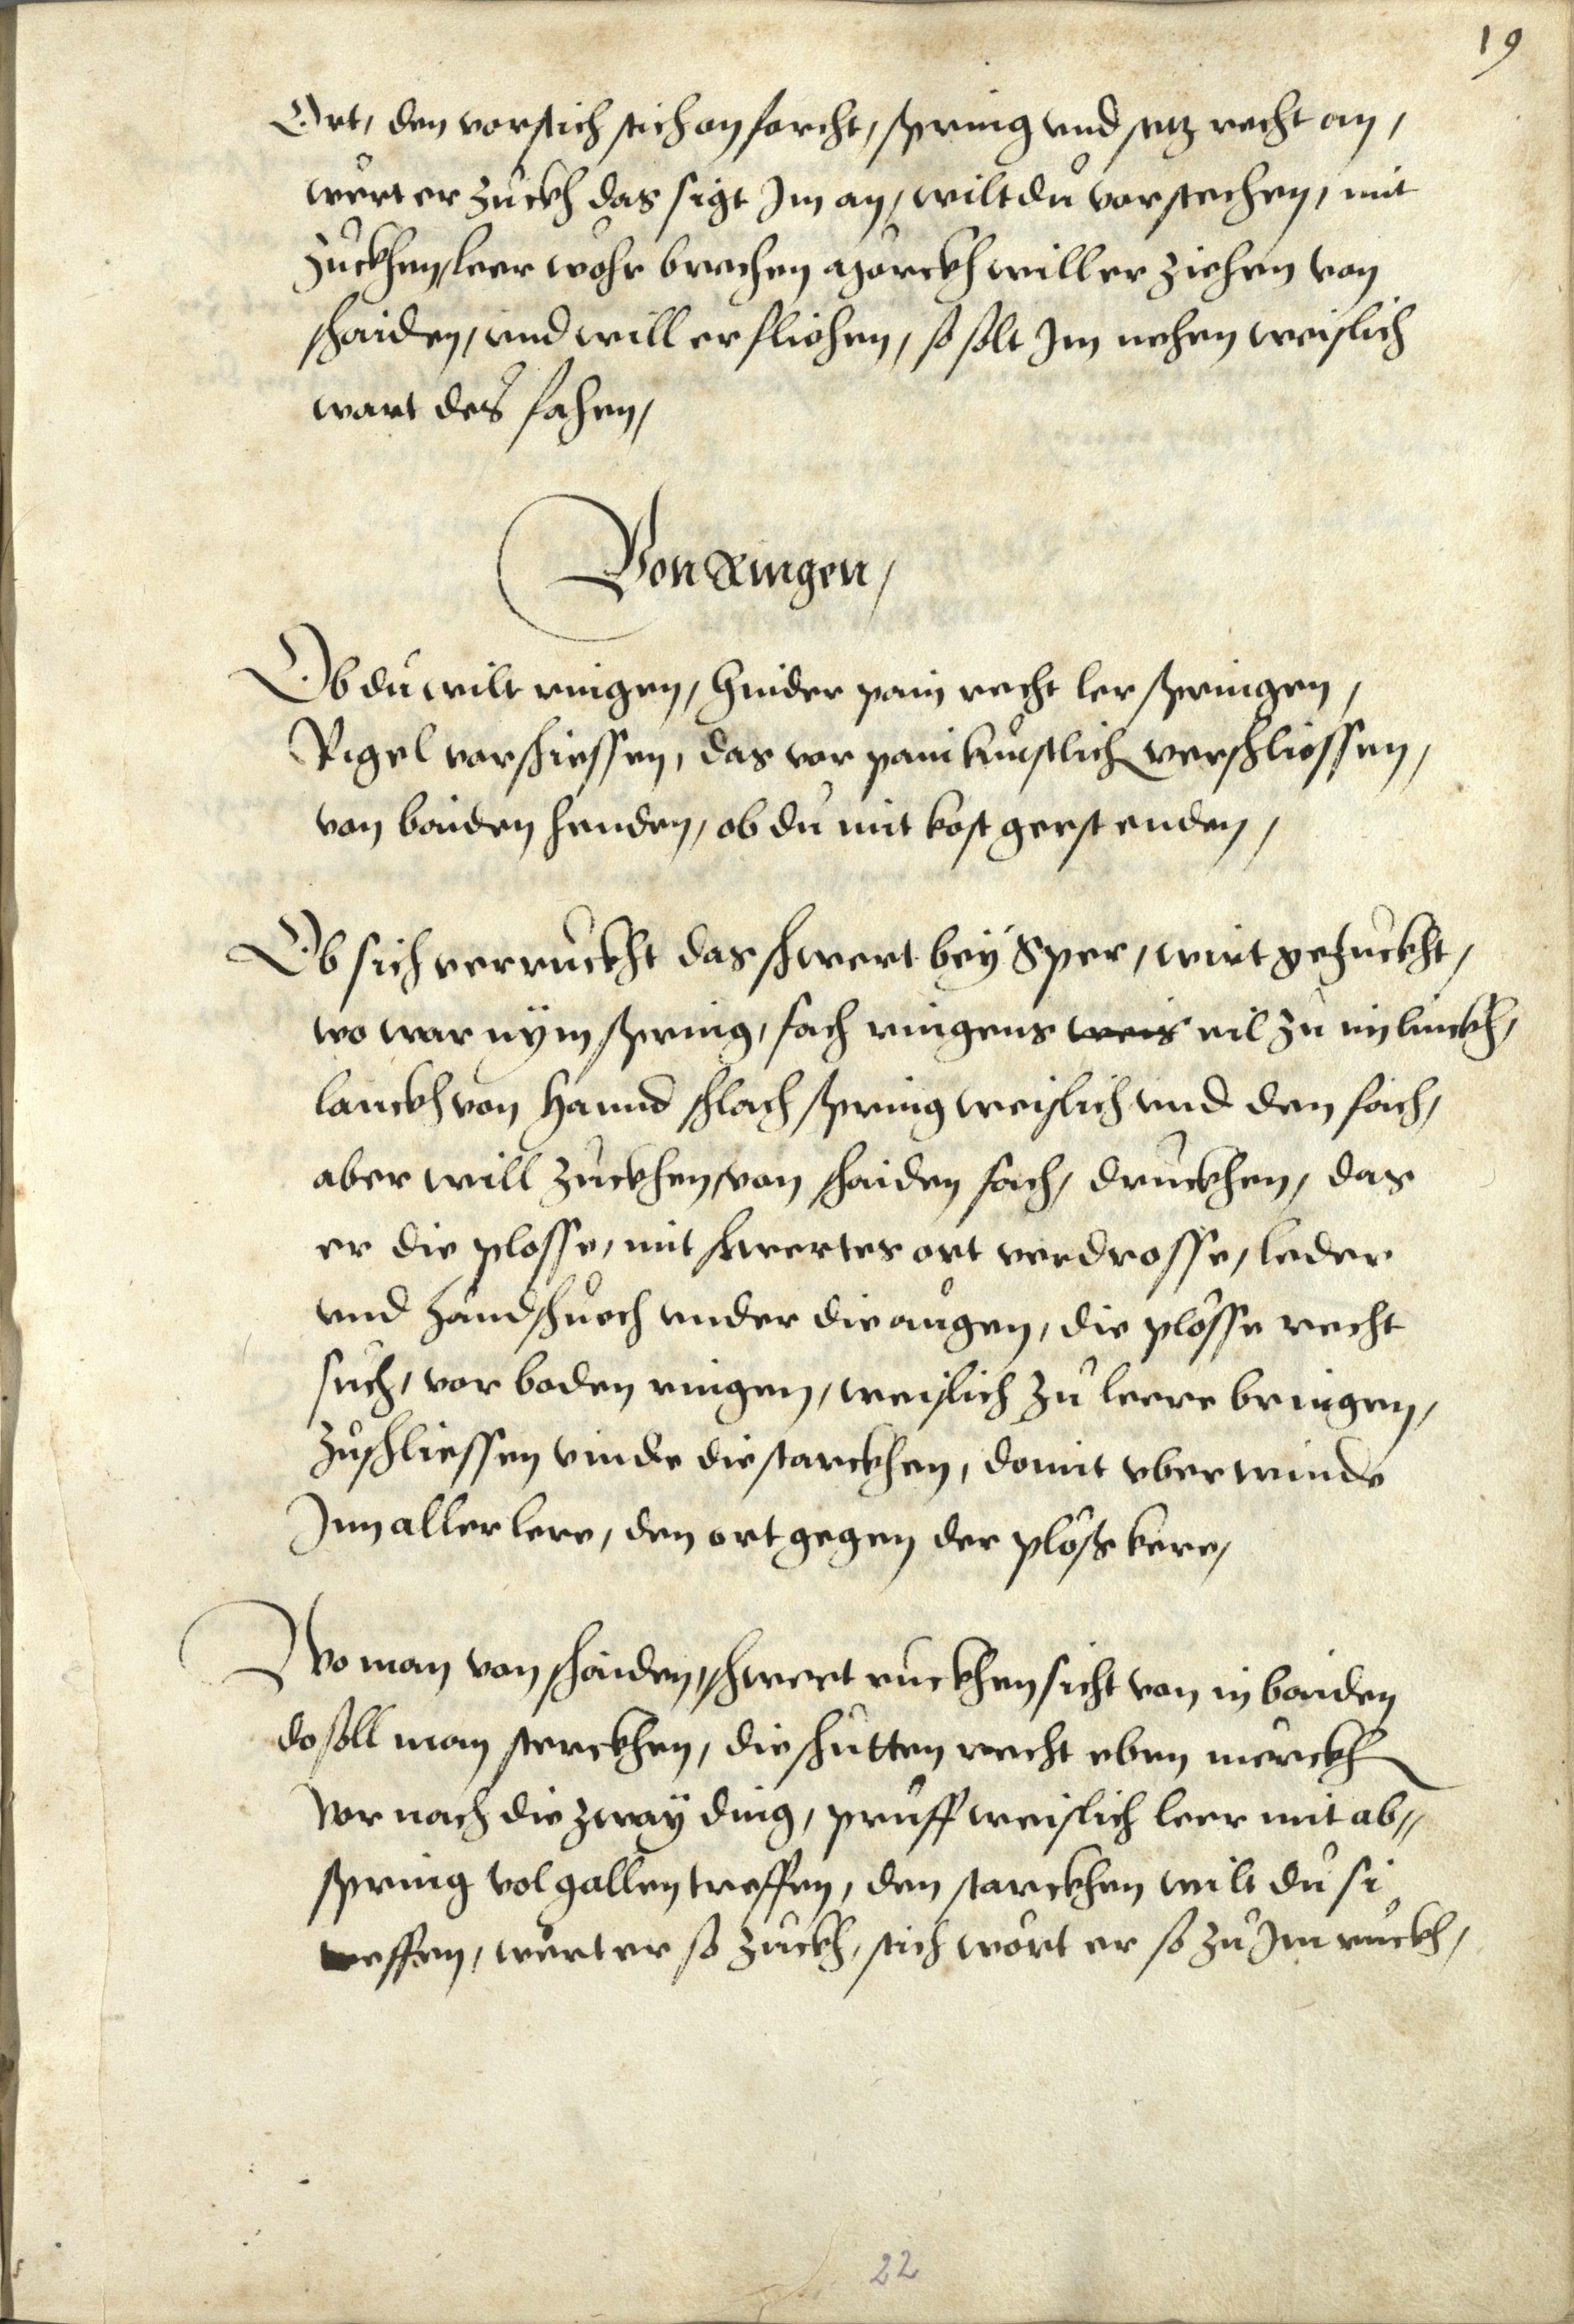 19
Ort, den vorstich stich on forcht, spring vnd setz recht an,
wert er zuckh das sigt Im an, wilt du vorstechen, mit
zuckhen, leer wohr brechen mörckh will er ziehen von
schaiden, vnd will er fliehen, so solt Im nehen weislich
wart des fahen,
Von Ringen,
Ob du wilt ringen, hinder pain recht ler springen,
Rigel vorschiessen, das vor pain kunstlich verschliessen,
von baiden henden, ob du mit kost gerst enden,
Ob sich verruckht das schwert bey Sper, wirt gezuckht,
wo war nÿm spring, fach ringens weis eil zu in linckh,
lanckh von hannd schlach spring weislich vnd den fach,
aber will zuckhen, von schaiden fach, druckhen, das
er die plosse, mit schwertes ort verdrosse, leder
vnd handschuech vnder die augen, die plösse recht
such, vor boden ringen, weislich zu leere bringen,
zuschliessen vinde die starckhen, domit vberwinde
Inn aller lere, den ort gegen der plöss kere,
Wo man von schaiden, schwert ruckhen sicht von in baiden
do soll man sterckhen, die schutten recht eben merckh
Vor nach die zway ding, prüff weislich leer mit ab=
spring volg allen treffen, den starckhen wilt du si
effen, wert er so zuckh, stich wört er so zu Im ruckh,
22